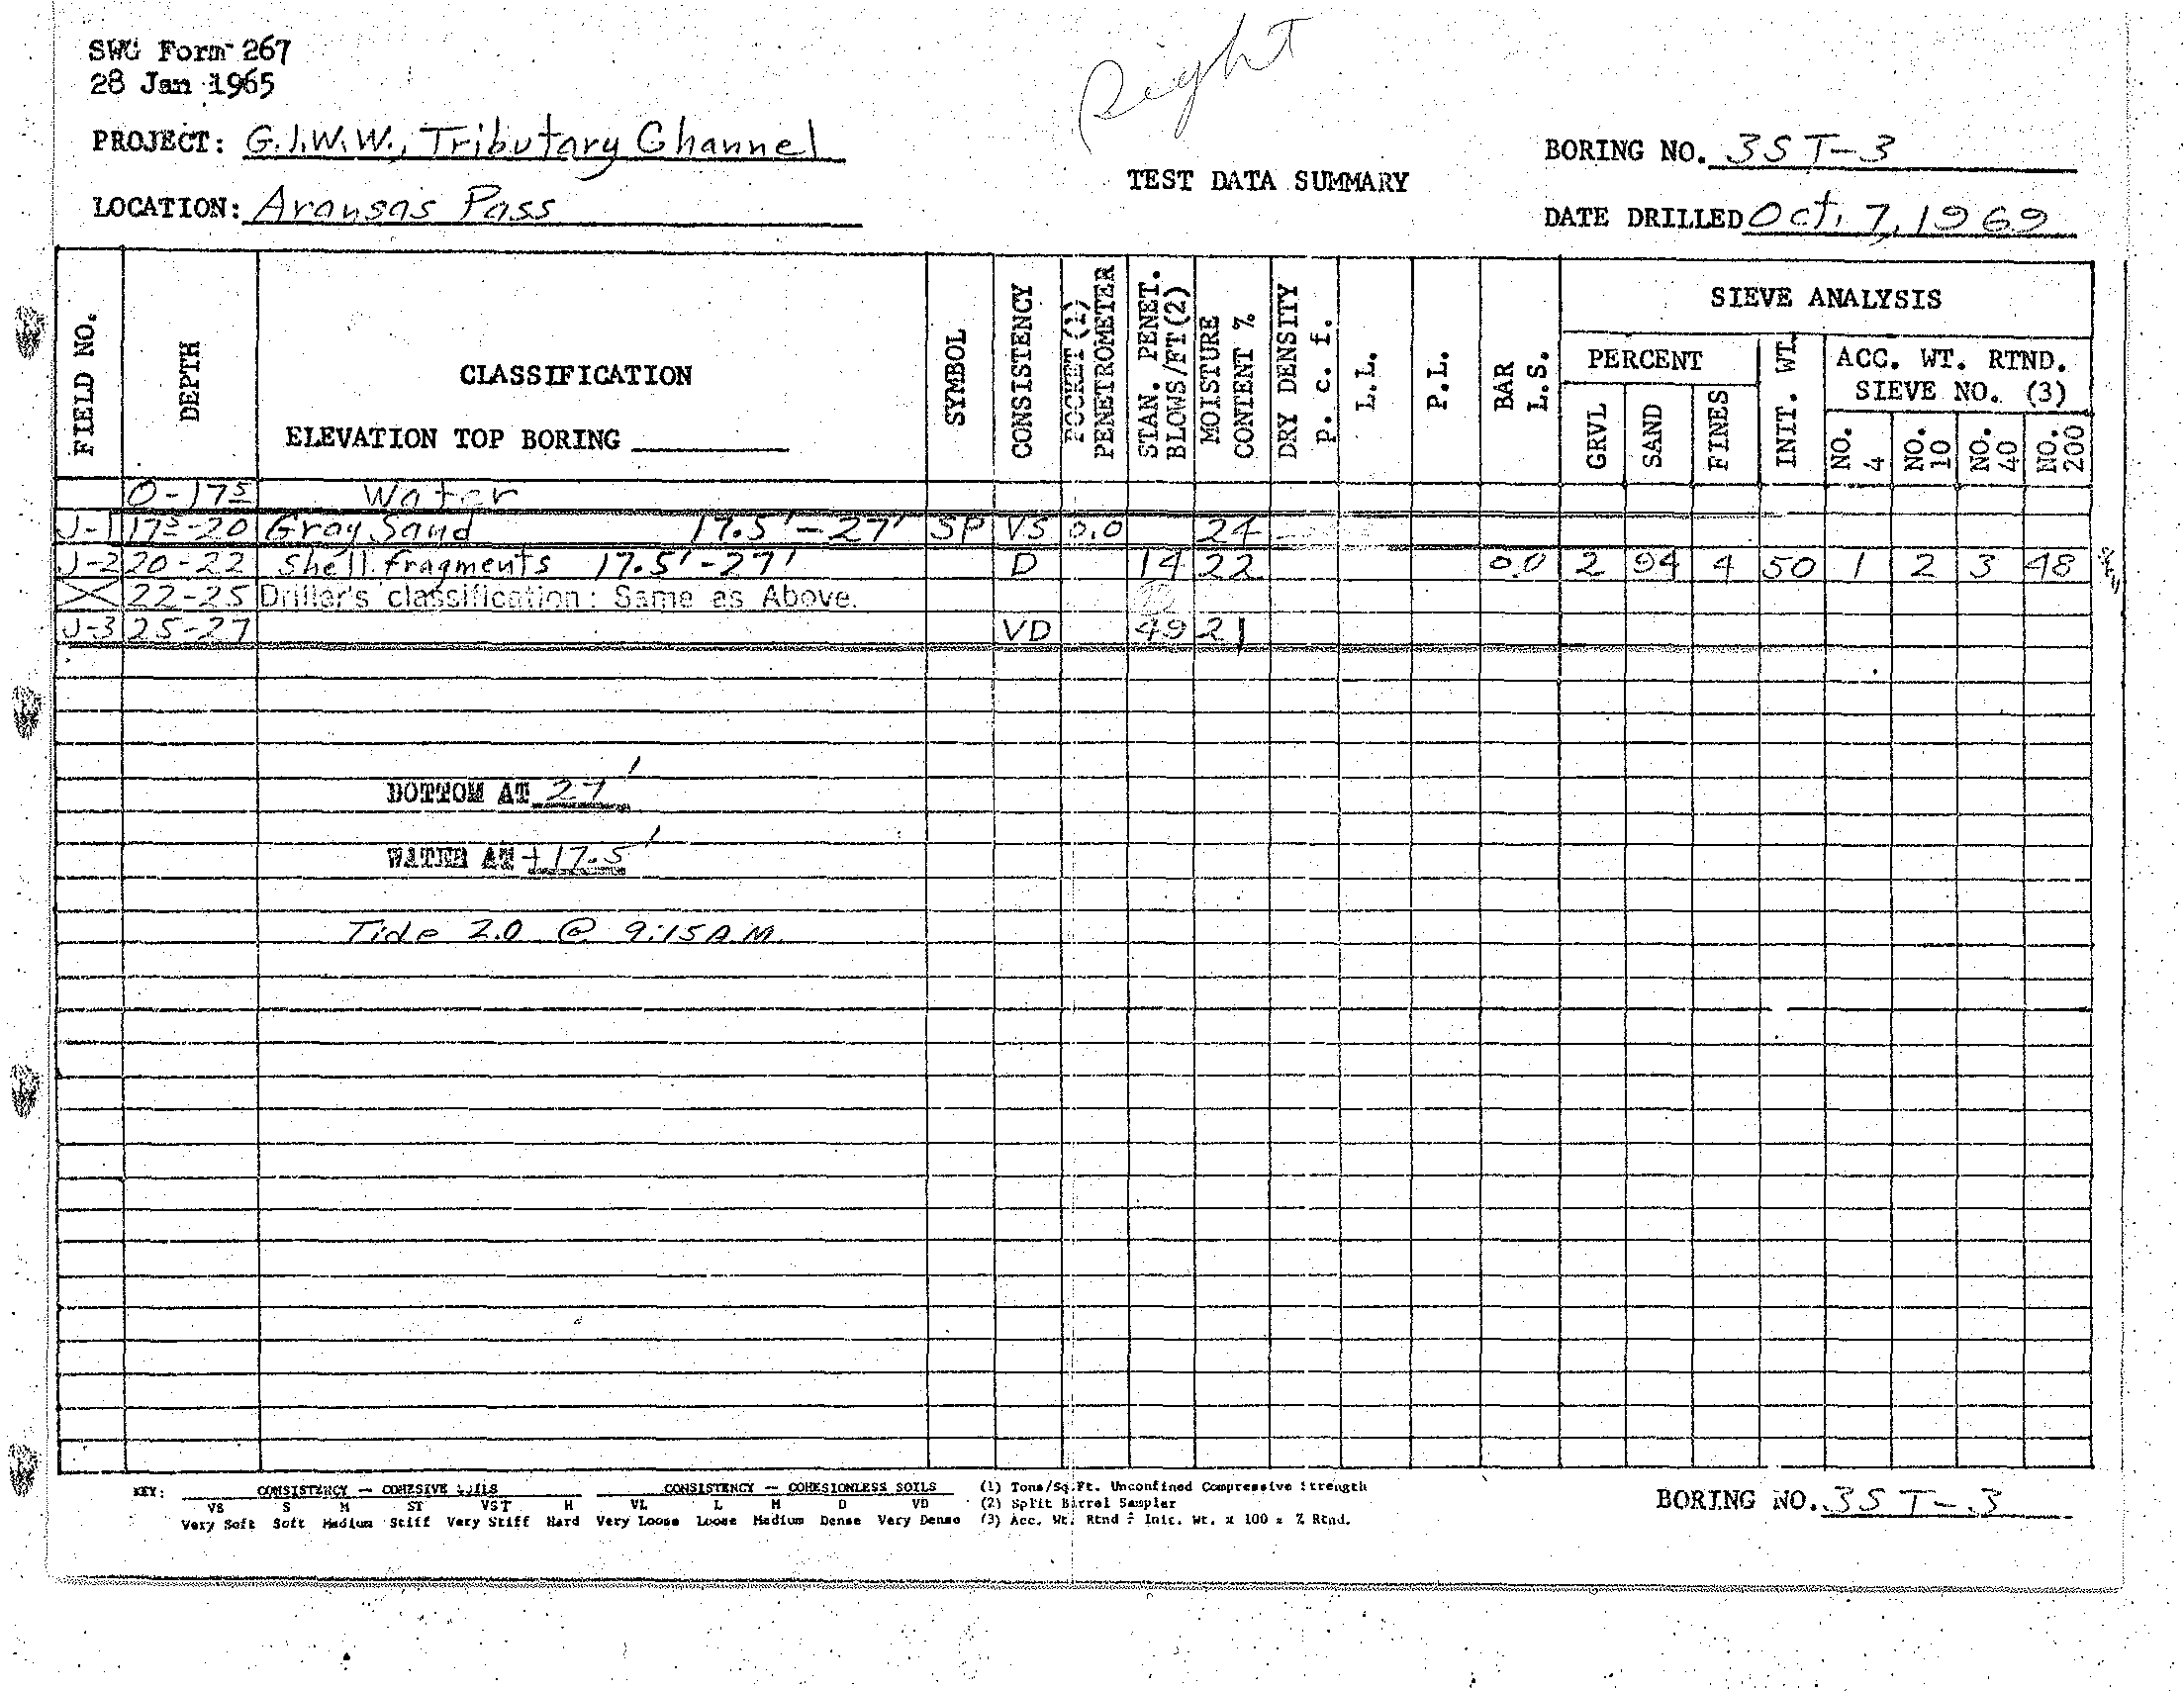 SWG Form 267
28 Jan 1965
Right
PROJECT: G.I.W.W., Tributary Channel
BORING NO. 3ST-3
TEST DATA SUMMARY
LOCATION: Aransas Pass
DATE DRILLED Oct. 7, 1969
FIELD NO.
DEPTH
CLASSIFICATION
ELEVATION TOP BORING
SYMBOL
CONSISTENCY
POCKET (1) PENETROMETER
STAN. PENET. BLOWS/FT(2)
MOISTURE CONTENT %
DRY DENSITY p. c. f.
L.L.
P.L.
BAR L.S.
SIEVE ANALYSIS
PERCENT
GRVL
SAND
FINES
INIT. WT.
ACC. WT. RTND.
SIEVE NO. (3)
NO. 4
NO. 10
NO. 40
NO. 200
0-17⁵ Water
J-1 17⁵-20 Gray Sand 17.5'-27' SP VS 0.0 24
J-2 20-22 Shell fragments 17.5'-27' D 14 22 0.0 2 94 4 50 1 2 3 48
22-25 Driller's classification: Same as Above.
J-3 25-27 VD 49 21
BOTTOM AT 27'
WATER AT +17.5'
Tide 2.0 @ 9:15 A.M.
KEY: CONSISTENCY - COHESIVE SOILS CONSISTENCY -- COHESIONLESS SOILS (1) Tons/Sq.Ft. Unconfined Compressive Strength
VS S M ST VST H VL L M D VD (2) Split Barrel Sampler
Very Soft Soft Medium Stiff Very Stiff Hard Very Loose Loose Medium Dense Very Dense (3) Acc. Wt. Rtnd ÷ Init. Wt. x 100 = % Rtnd.
BORING NO. 3ST-3